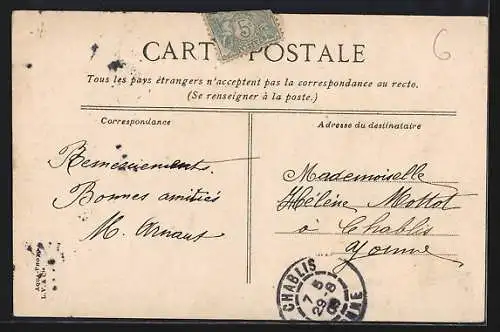 5
6
CARTE POSTALE
Tous les pays étrangers n'acceptent pas la correspondance au recto.
(Se renseigner à la poste.)
Correspondance
Adresse du destinataire
Remerciements.
Bonnes amitiés
M. Arnaut
Mademoiselle
Hélène Mottot
à Chablis
Yonne
L.V. & Cie
CHABLIS
7 5
29 -8